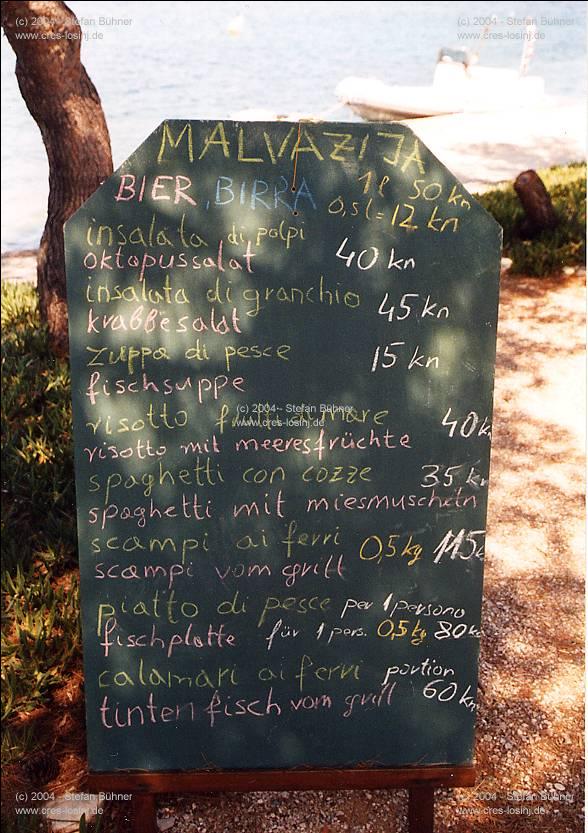 (c) 2004 - Stefan Bühner
www.cres-losinj.de
(c) 2004 - Stefan Bühner
www.cres-losinj.de
MALVAZIJA 1l 50 kn
BIER, BIRRA 0,5l = 12 kn
insalata di polpi
oktopussalat 40 kn
insalata di granchio
krabbesalat 45 kn
zuppa di pesce 15 kn
fischsuppe
(c) 2004 - Stefan Bühner
www.cres-losinj.de
risotto frutti di mare 40 kn
risotto mit meeresfrüchte
spaghetti con cozze 35 kn
spaghetti mit miesmuscheln
scampi ai ferri 0,5 kg 115 k
scampi vom grill
piatto di pesce per 1 persono
fischplatte für 1 pers. 0,5 kg 80 kn
calamari ai ferri portion
tintenfisch vom grill 60 kn
(c) 2004 - Stefan Bühner
www.cres-losinj.de
(c) 2004 - Stefan Bühner
www.cres-losinj.de